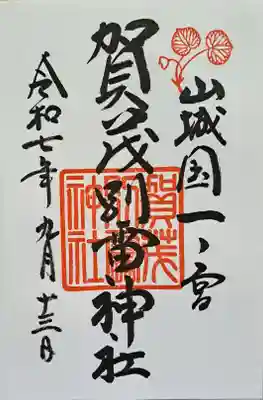 山城国一ノ宮
賀茂別雷神社
令和七年九月十三日
賀茂
別雷
神社